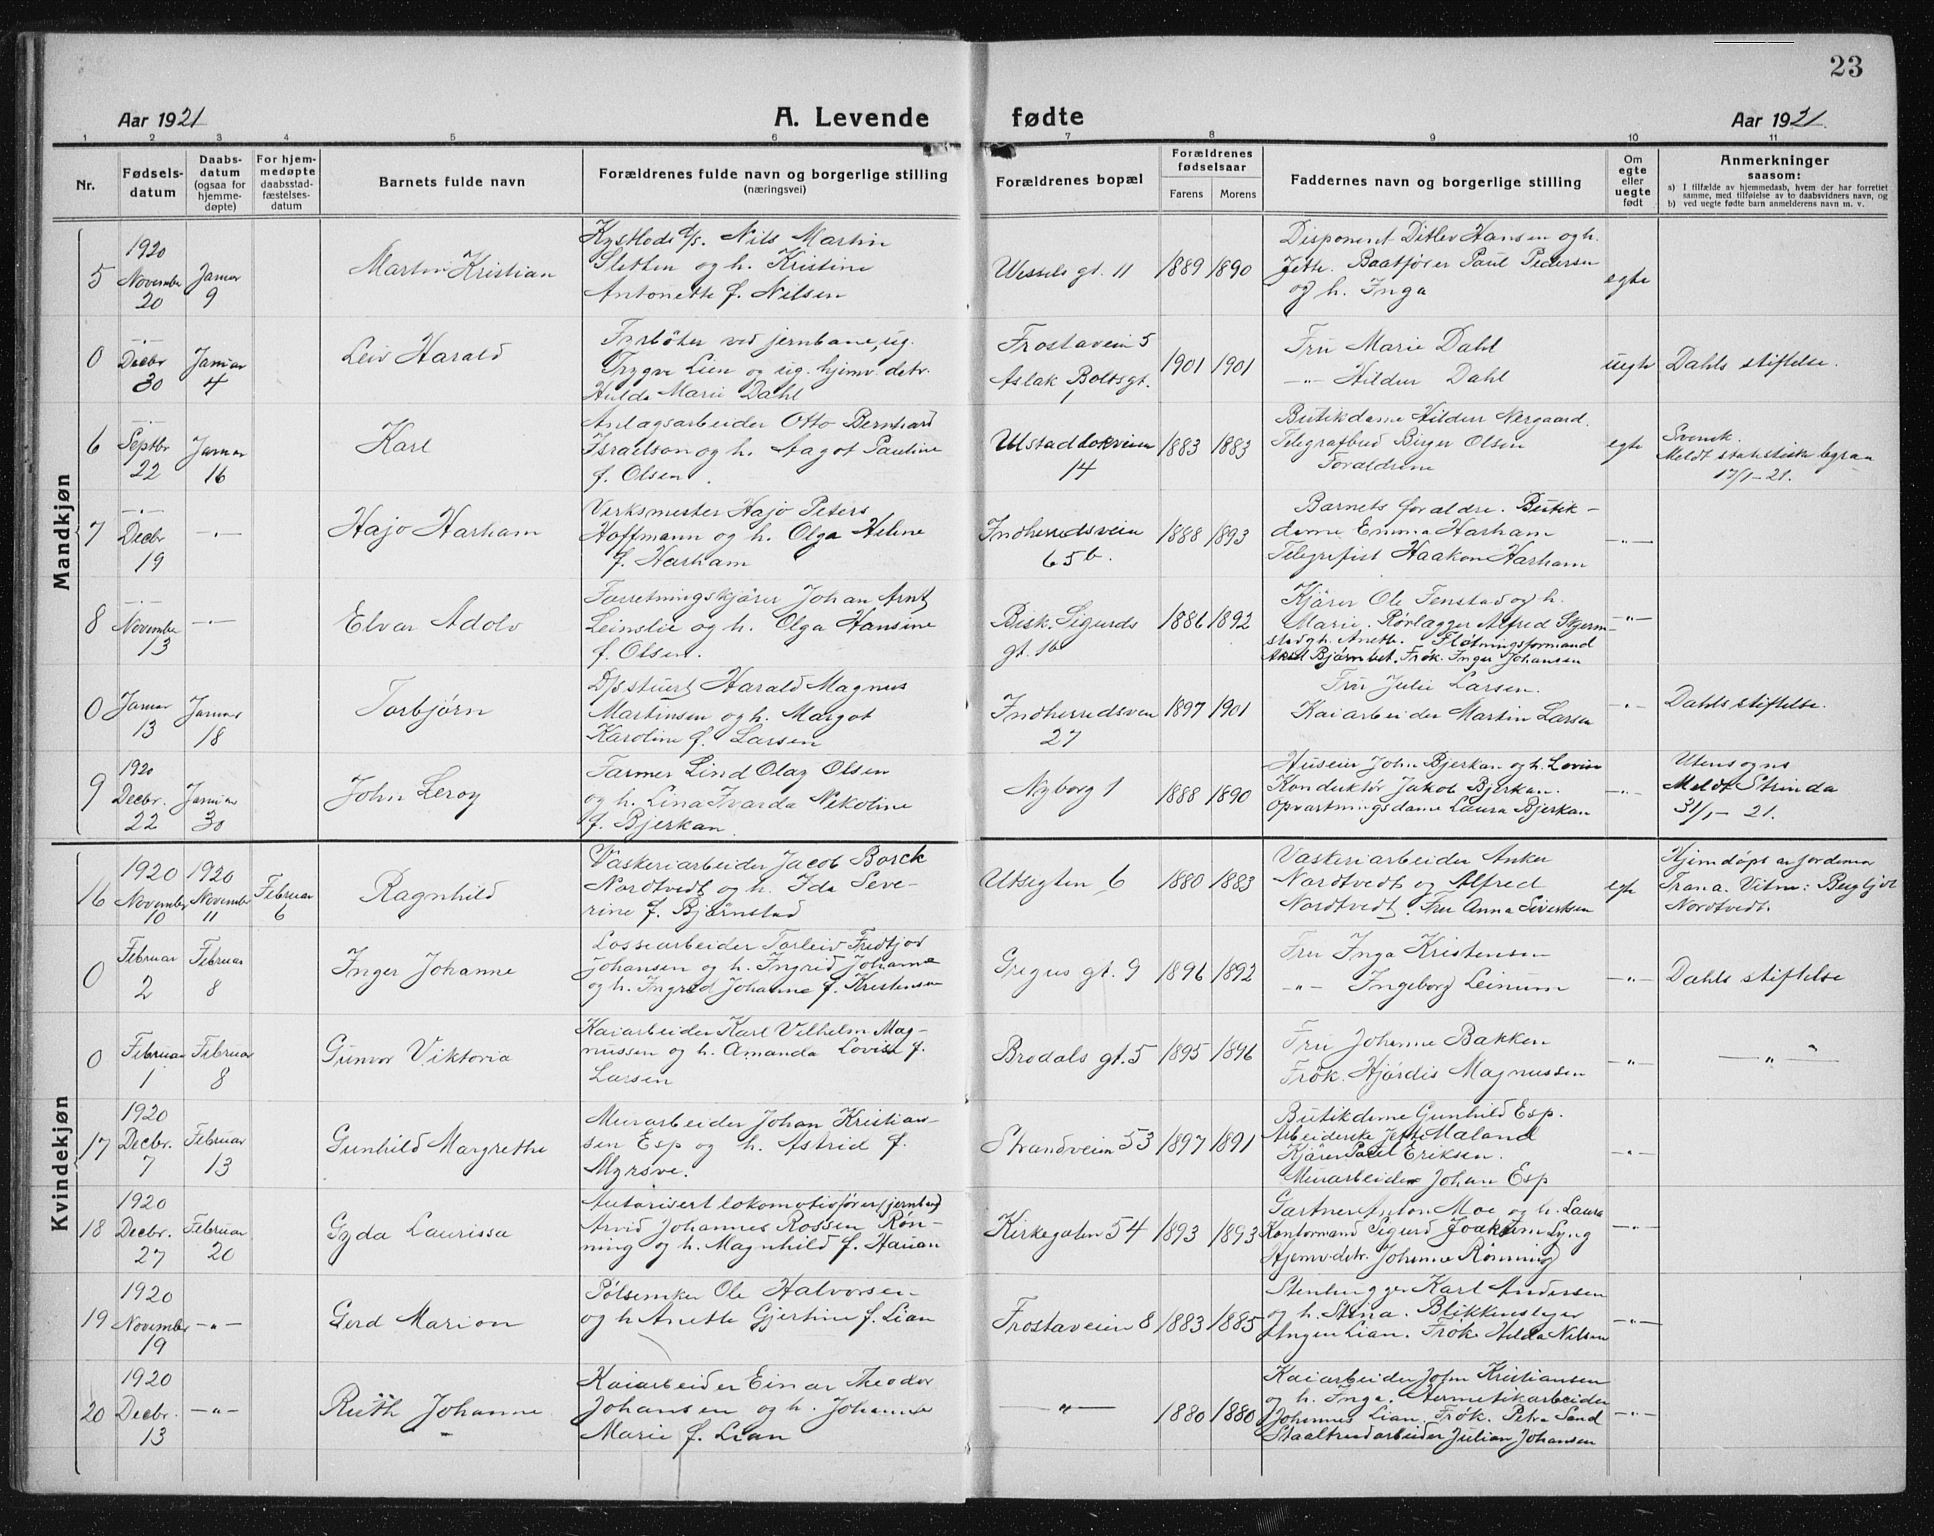 23
Aar 1921
A. Levende
fødte
Aar 1921.
1 2 3 4 5 6 7 8 9 10 11
Nr.
Fødsels-
datum
Daabs-
datum
(ogsaa for
hjemme-
døpte)
For hjem-
medøpte
daabsstad-
fæstelses-
datum
Barnets fulde navn
Forældrenes fulde navn og borgerlige stilling
(næringsvei)
Forældrenes bopæl
Forældrenes
fødselsaar
Farens Morens
Faddernes navn og borgerlige stilling
Om
egte
eller
uegte
født
Anmerkninger
saasom:
a) I tilfælde av hjemmedaab, hvem der har forrettet
samme, med tilføielse av to daabsvidners navn, og
b) ved uegte fødte barn anmelderens navn m. v.
Mandkjøn
5
1920
November
20
Januar
9
Martin Kristian
Kystlods Nils Martin
Sletten og h. Kristine
Antonette f. Nilsen
Wessels gt. 11
1889 1890
Disponent Ditlev Hansen og h.
Jeth. Baatfører Paul Pedersen
og h. Inga
egte
0
Decbr
30
Januar
4
Leiv Harald
Fyrbøter ved jernbane, ug.
Trygve Lien og ug. hjemv. detr.
Hulda Marie Dahl
Frostaveien 5
Aslak Boltsgt. 1
1901 1901
Fru Marie Dahl
—"— Hildur Dahl
uegte
Dahls stiftelse.
6
Septbr
22
Januar
16
Karl
Anlagsarbeider Otto Bernhard
Israelson og h. Aagot Pauline
f. Olsen.
Ulstadløkveien
14
1883 1883
Butikdame Hildur Nergaard.
Telegrafbud Birger Olsen
Foraldrene
egte
Svensk.
Meldt statistiske
17/1-21.
7
Decbr
19
—"—
Hajo Harham
Verksmester Hajo Peters
Hoffmann og h. Olga Helene
f. Harham
Indherredsveien
65b.
1888 1893
Barnets foraldre. Butik-
dame Emma Harham
Telegrafist Haakon Harham
—"—
8
November
13
—"—
Elvar Adolv
Forretningskjører Johan Arnt
Leinslie og h. Olga Hansine
f. Olsen.
Bisk. Sigurds
gt. 16
1886 1892
Kjører Ole Tenstad og h.
Marie. Rørlægger Alfred Skjerm-
stad og h. Aneth. Fløtningsformand
Aksel. Frøk. Inger Johansen
—"—
0
Januar
13
Januar
18
Torbjørn
D/s stuert Harald Magnus
Martinsen og h. Margot
Karoline f. Larsen
Indherredsveien
27
1897 1901
Fru Julie Larsen.
Kaiarbeider Martin Larsen
—"—
Dahls stiftelse.
9
1920
Decbr.
22
Januar
30
John Leroy
Farmer Lind Olaz Olsen
og h. Lina Ivarda Nikoline
f. Bjerkan.
Nyborg 1
1888 1890
Huseier John Bjerkan og h. Lovise
Konduktør Jakob Bjerkan.
Opvartningsdame Laura Bjerkan
—"—
Utensogns
Meldt Strinda
31/1-21.
Kvindekjøn
16
1920
November
10
1920
November
11
Februar
6
Ragnhild
Vaskeriarbeider Jacob Borck
Nordtvedt og h. Ida Seve-
rine f. Bjørnstad
Utsigten 6
1880 1883
Vaskeriarbeider Anker
Nordtvedt og Alfred
Nordtvedt. Fru Anna Siverksen
egte
Hjemdøpt av jordemor
Trana. Vitne: Bergljot
Nordtvedt.
0
Februar
2
Februar
8
Inger Johanne
Lossearbeider Torleiv Fredtjov
Johansen og h. Ingrid Johanne
og h. Ingrid Johanne f. Kristensen
Gregus gt. 9
1896 1892
Fru Inga Kristensen
—"— Ingeborg Leinum
—"—
Dahls stiftelse
0
Februar
1
Februar
8
Gunvor Viktoria
Kaiarbeider Karl Vilhelm Mag-
nussen og h. Amanda Lovise f.
Larsen
Brodals gt. 5
1895 1896
Fru Johanne Bakken
Frøk. Hjørdis Magnussen
—"—
—"— "
17
1920
Decbr.
7
Februar
13
Gunhild Margrethe
Murarbeider Johan Kristian-
sen Esp og h. Astrid f.
Myrsve.
Strandveien 53
1897 1891
Butikdame Gunhild Esp.
Arbeiderske Maland
Kjører Paul Eriksen.
Murarbeider Johan Esp
—"—
18
1920
Decbr.
27
Februar
20
Gyda Laurissa
Autorisert lokomotivfører
Arvid Johannes Rossen Røn-
ning og h. Magnhild f. Hauan
Kirkegaten 54
1893 1893
Gartner Anton Moe og h. Laura
Kontormand Sigurd Joakim Lyng
Hjemv. detr. Johanne Rønning
—"—
19
1920
November
19
—"—
Gerd Marion
Pølsemker Ole Halvorsen
og h Anette Gjertine f. Lian
Frostaveien 8
1883 1885
Stenhugger Karl Andersen
og h. Stina. Blikkenslager
Lian. Frøk. Hilda Nilsen
—"—
20
1920
Decbr.
13
—"—
Ruth Johanne
Kaiarbeider Einar Theodor
Johansen og h. Johanne
Marie f. Lian
—"—
1880 1880
Kaiarbeider John Kristiansen
og h. Inga. Hermetikarbeider
Johannes Lian. Frøk. Petra Sand
Julian Johansen
—"—